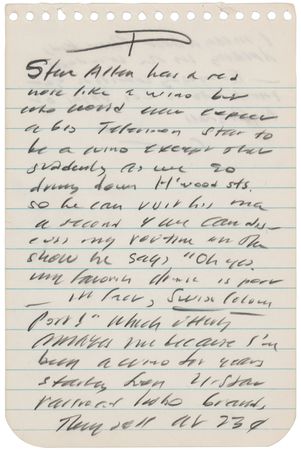 Steve Allen has a red
nose like a wino but
who would ever expect
a big Television star to
be a wino except that
suddenly as we go
driving down H'wood sts.
so he can visit his ma
a second & we can dis-
cuss my routine on the
show he says "Oh yes
my favorite drink is port
— in fact, Swiss Colony
Port!" which utterly
amazes me because I'm
been a wino for years
starting from
railroad hobo brand,
They sell at 23¢